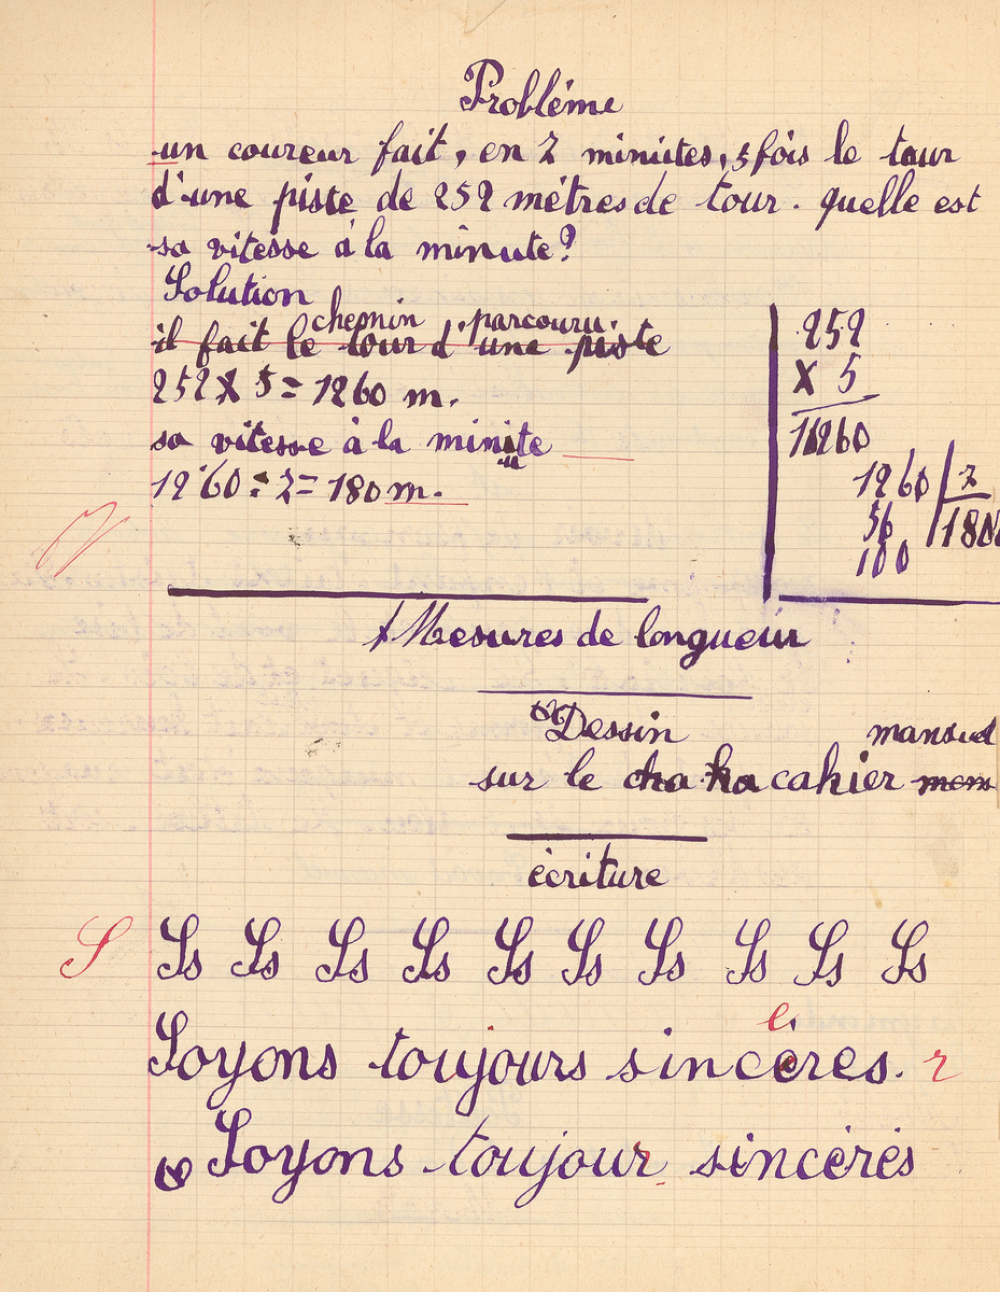 Probléme
un coureur fait, en 7 minutes, 5 fois le tour
d'une piste de 252 métres de tour. quelle est
sa vitesse à la minute?
Solution
chemin parcouru.
il fait le tour d'une piste
252 X 5 = 1260 m.
sa vitesse à la minite
u
1260 : 7 = 180 m.
252
X 5
1260
1260 7
56 180
100
Mesures de longueur
Dessin
manuel
sur le cha ha cahier mem
écriture
S Ss Ss Ss Ss Ss Ss Ss Ss Ss Ss
è
Soyons toujours sincères. r
Soyons toujour sincérés